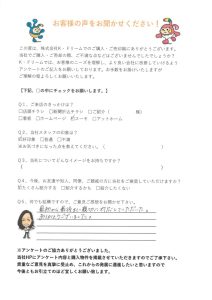 お客様の声をお聞かせください！
この度は、株式会社K・ドリームでのご購入・ご売却誠にありがとうございます。
当社でのご購入・ご売却の際、ご不満な点などはございませんでしたでしょうか？
K・ドリームでは、お客様のニーズを理解し、より良い会社に改善していけるよう
アンケートのご記入をお願いしております。お手数をお掛けいたしますが
ご理解の程よろしくお願いいたします。
【下記、□の中にチェックをお願いします。】
Q1、ご来店のきっかけは？
□店頭チラシ □新聞折込チラシ □ご紹介（ 様）
□看板 □ホームページ □スーモ □アットホーム
Q2、当社スタッフの印象は？
□好印象 □普通 □不満
※お気づきになった点を教えてください。（ ）
Q3、当社についてどんなイメージをお持ちですか？
（ ）
Q4、今後、お友達や知人、同僚、ご親戚などに当社をご紹介していただけますか？
□たくさん紹介する □紹介する □紹介したくない
Q5、何でも結構ですので、ご意見をお願いいたします。
※アンケートのご協力ありがとうございました。
当社HPにアンケート内容と購入物件を掲載させていただきますのでご了承下さい。
貴重なご意見を真摯に受止め、これからの発展に邁進したいと思いますので
今後ともお引立てのほど宜しくお願い致します。